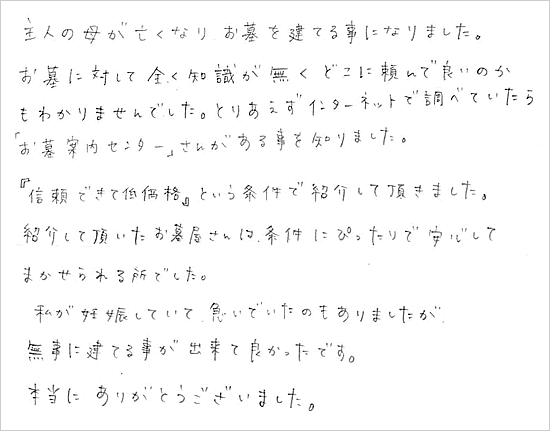 主人の母が亡くなり、お墓を建てる事になりました。
お墓に対して全く知識が無くどこに頼んで良いのか
もわかりませんでした。とりあえずインターネットで調べていたら
「お墓案内センター」さんがある事を知りました。
『信頼できて低価格』という条件で紹介して頂きました。
紹介して頂いたお墓屋さんは、条件にぴったりで安心して
まかせられる所でした。
私が妊娠していて、急いでいたのもありましたが、
無事に建てる事が出来て良かったです。
本当にありがとうございました。